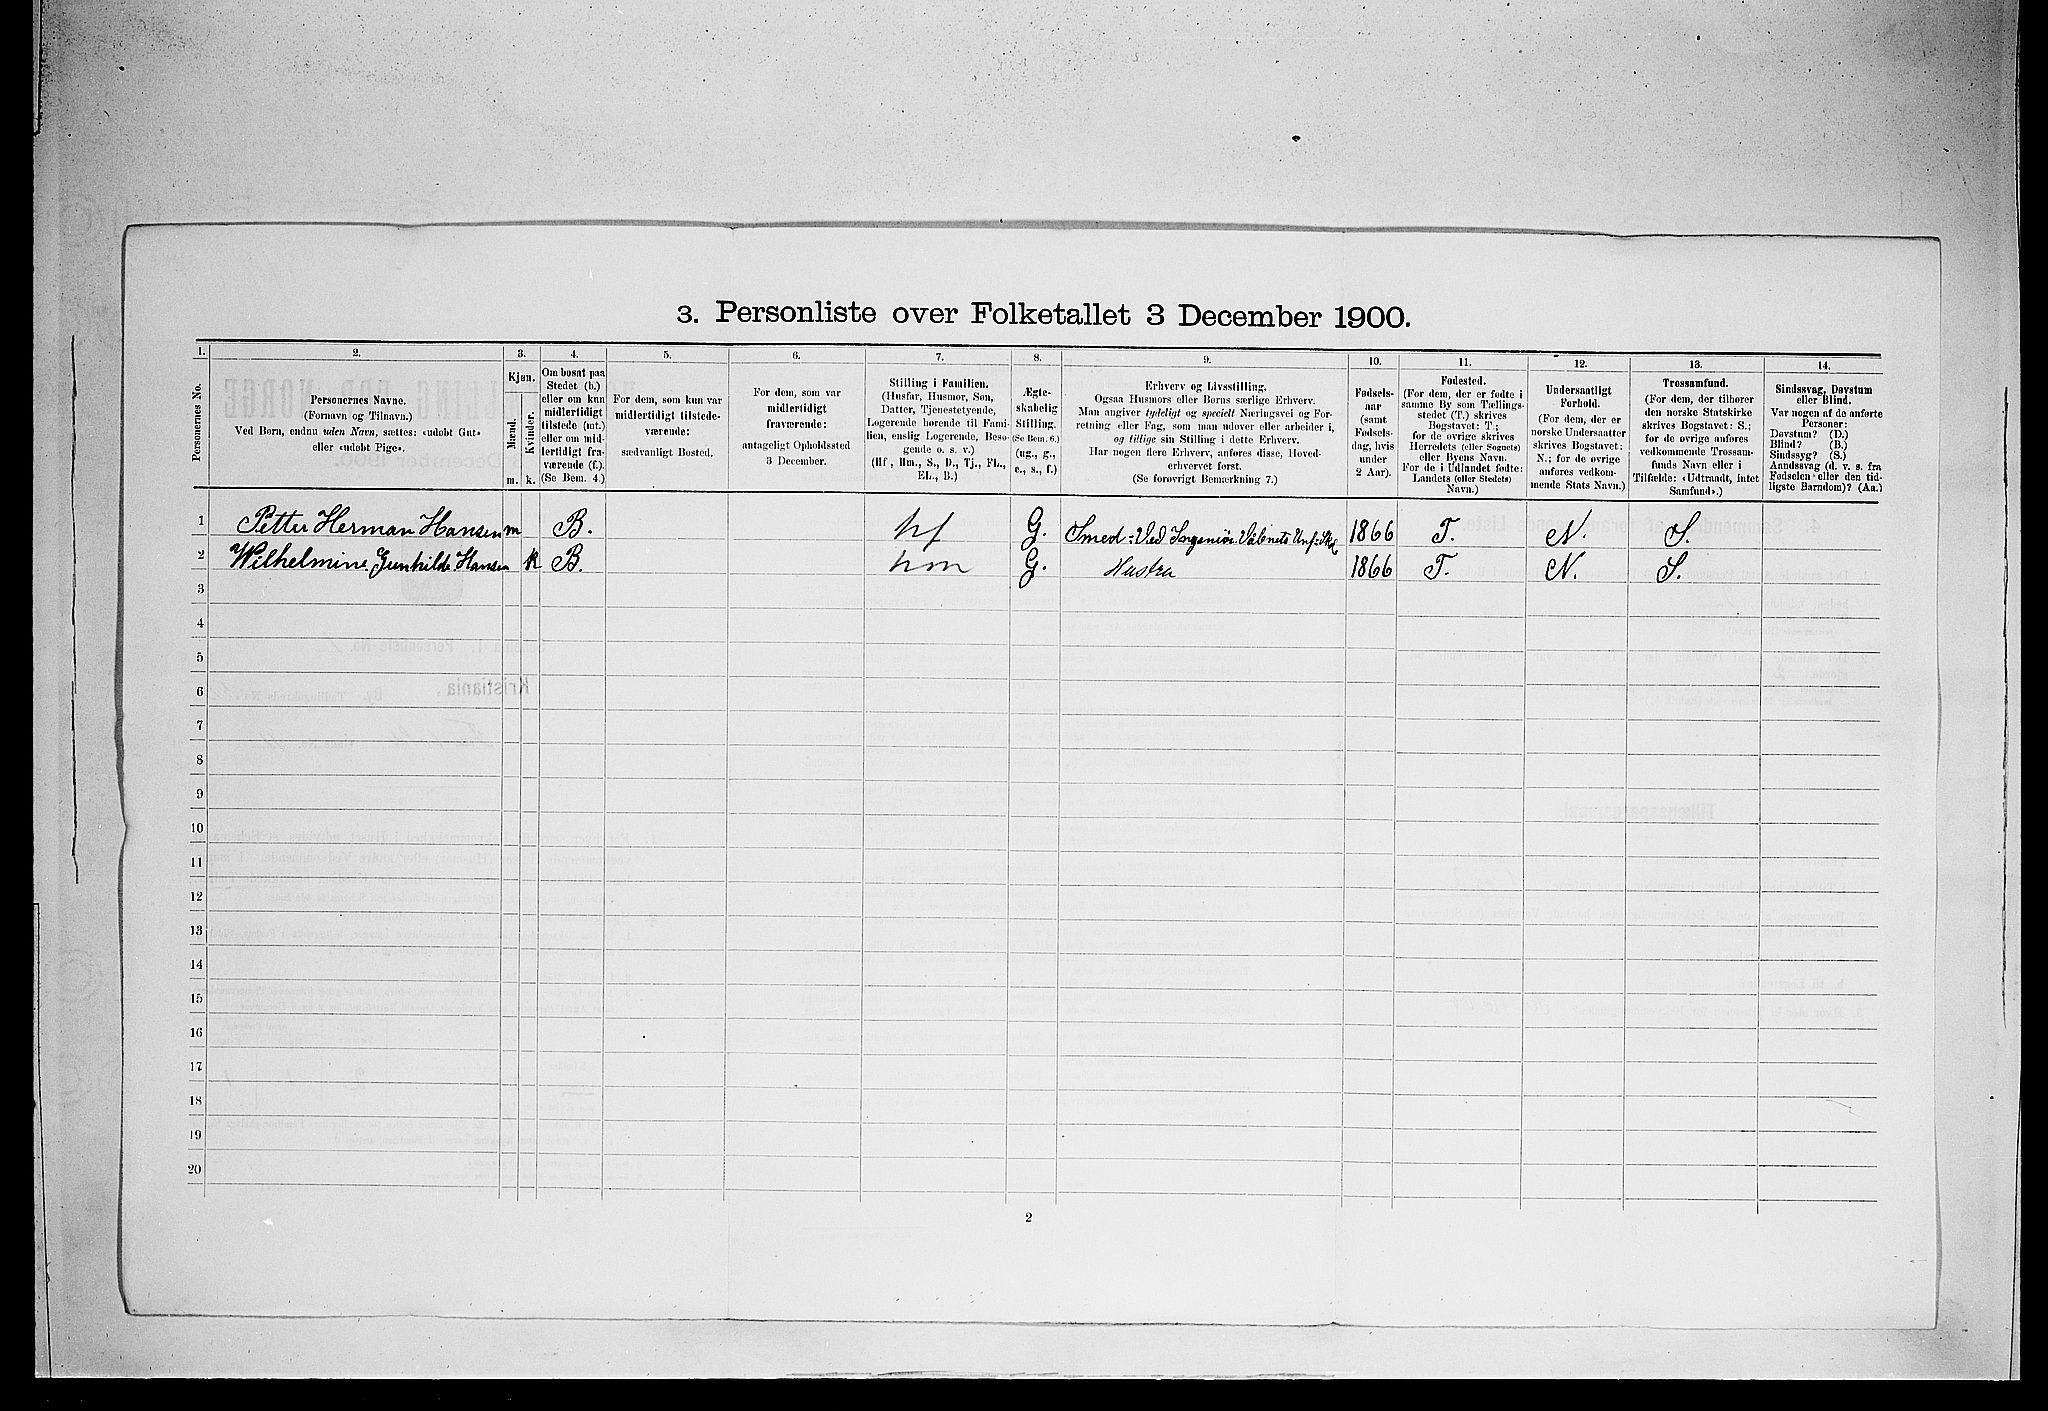 3. Personliste over Folketallet 3 December 1900.
1. 2. 3. 4. 5. 6. 7. 8. 9. 10. 11. 12. 13. 14.
Personernes No.
Personernes Navne.
(Fornavn og Tilnavn.)
Ved Børn, endnu uden Navn, sættes: «udøbt Gut»
eller «udøbt Pige».
Kjøn.
Mænd.
Kvinder.
m. k.
Om bosat paa
Stedet (b.)
eller om kun
midlertidigt
tilstede (mt.)
eller om mid-
lertidigt fra-
værende (f.).
(Se Bem. 4.)
For dem, som kun var
midlertidigt tilstede-
værende:
sædvanligt Bosted.
For dem, som var
midlertidigt
fraværende:
antageligt Opholdssted
3 December.
Stilling i Familien.
(Husfar, Husmor, Søn,
Datter, Tjenestetyende,
Logerende hørende til Fami-
lien, enslig Logerende, Besø-
gende o. s. v.)
(Hf., Hm., S., D., Tj., FL.,
EL., B.)
Ægte-
skabelig
Stilling.
(Se Bem. 6.)
(ug., g.,
e., s., f.)
Erhverv og Livsstilling.
Ogsaa Husmors eller Børns særlige Erhverv.
Man angiver tydeligt og specielt Næringsvei og For-
retning eller Fag, som man udøver eller arbeider i,
og tillige sin Stilling i dette Erhverv.
Har nogen flere Erhverv, anføres disse, Hoved-
erhvervet først.
(Se forøvrigt Bemærkning 7.)
Fødsels-
aar
(samt
Fødsels-
dag, hvis
under
2 Aar).
Fødested.
(For dem, der er fødte i
samme By som Tællings-
stedet (T.) skrives
Bogstavet: T.;
for de øvrige skrives
Herredets (eller Sognets)
eller Byens Navn.
For de i Udlandet fødte:
Landets (eller Stedets)
Navn.)
Undersaatligt
Forhold.
(For dem, der er
norske Undersaatter
skrives Bogstavet:
N.; for de øvrige
anføres vedkom-
mende Stats Navn.)
Trossamfund.
(For dem, der tilhører
den norske Statskirke
skrives Bogstavet: S.;
for de øvrige anføres
vedkommende Trossam-
funds Navn eller i
Tilfælde: «Udtraadt, intet
Samfund».)
Sindssvag, Døvstum
eller Blind.
Var nogen af de anførte
Personer:
Døvstum? (D.)
Blind? (B.)
Sindssyg? (S.)
Aandssvag (d. v. s. fra
Fødselen eller den tid-
ligste Barndom)? (Aa.)
1 Petter Herman Hansen m B. hf G. Smed : Ved Ingeniør 1866 T. N. S.
2 Wilhelmine Gunhilde Hansen k B. hm G. Hustru 1866 T. N. S.
3
4
5
6
7
8
9
10
11
12
13
14
15
16
17
18
19
20
2